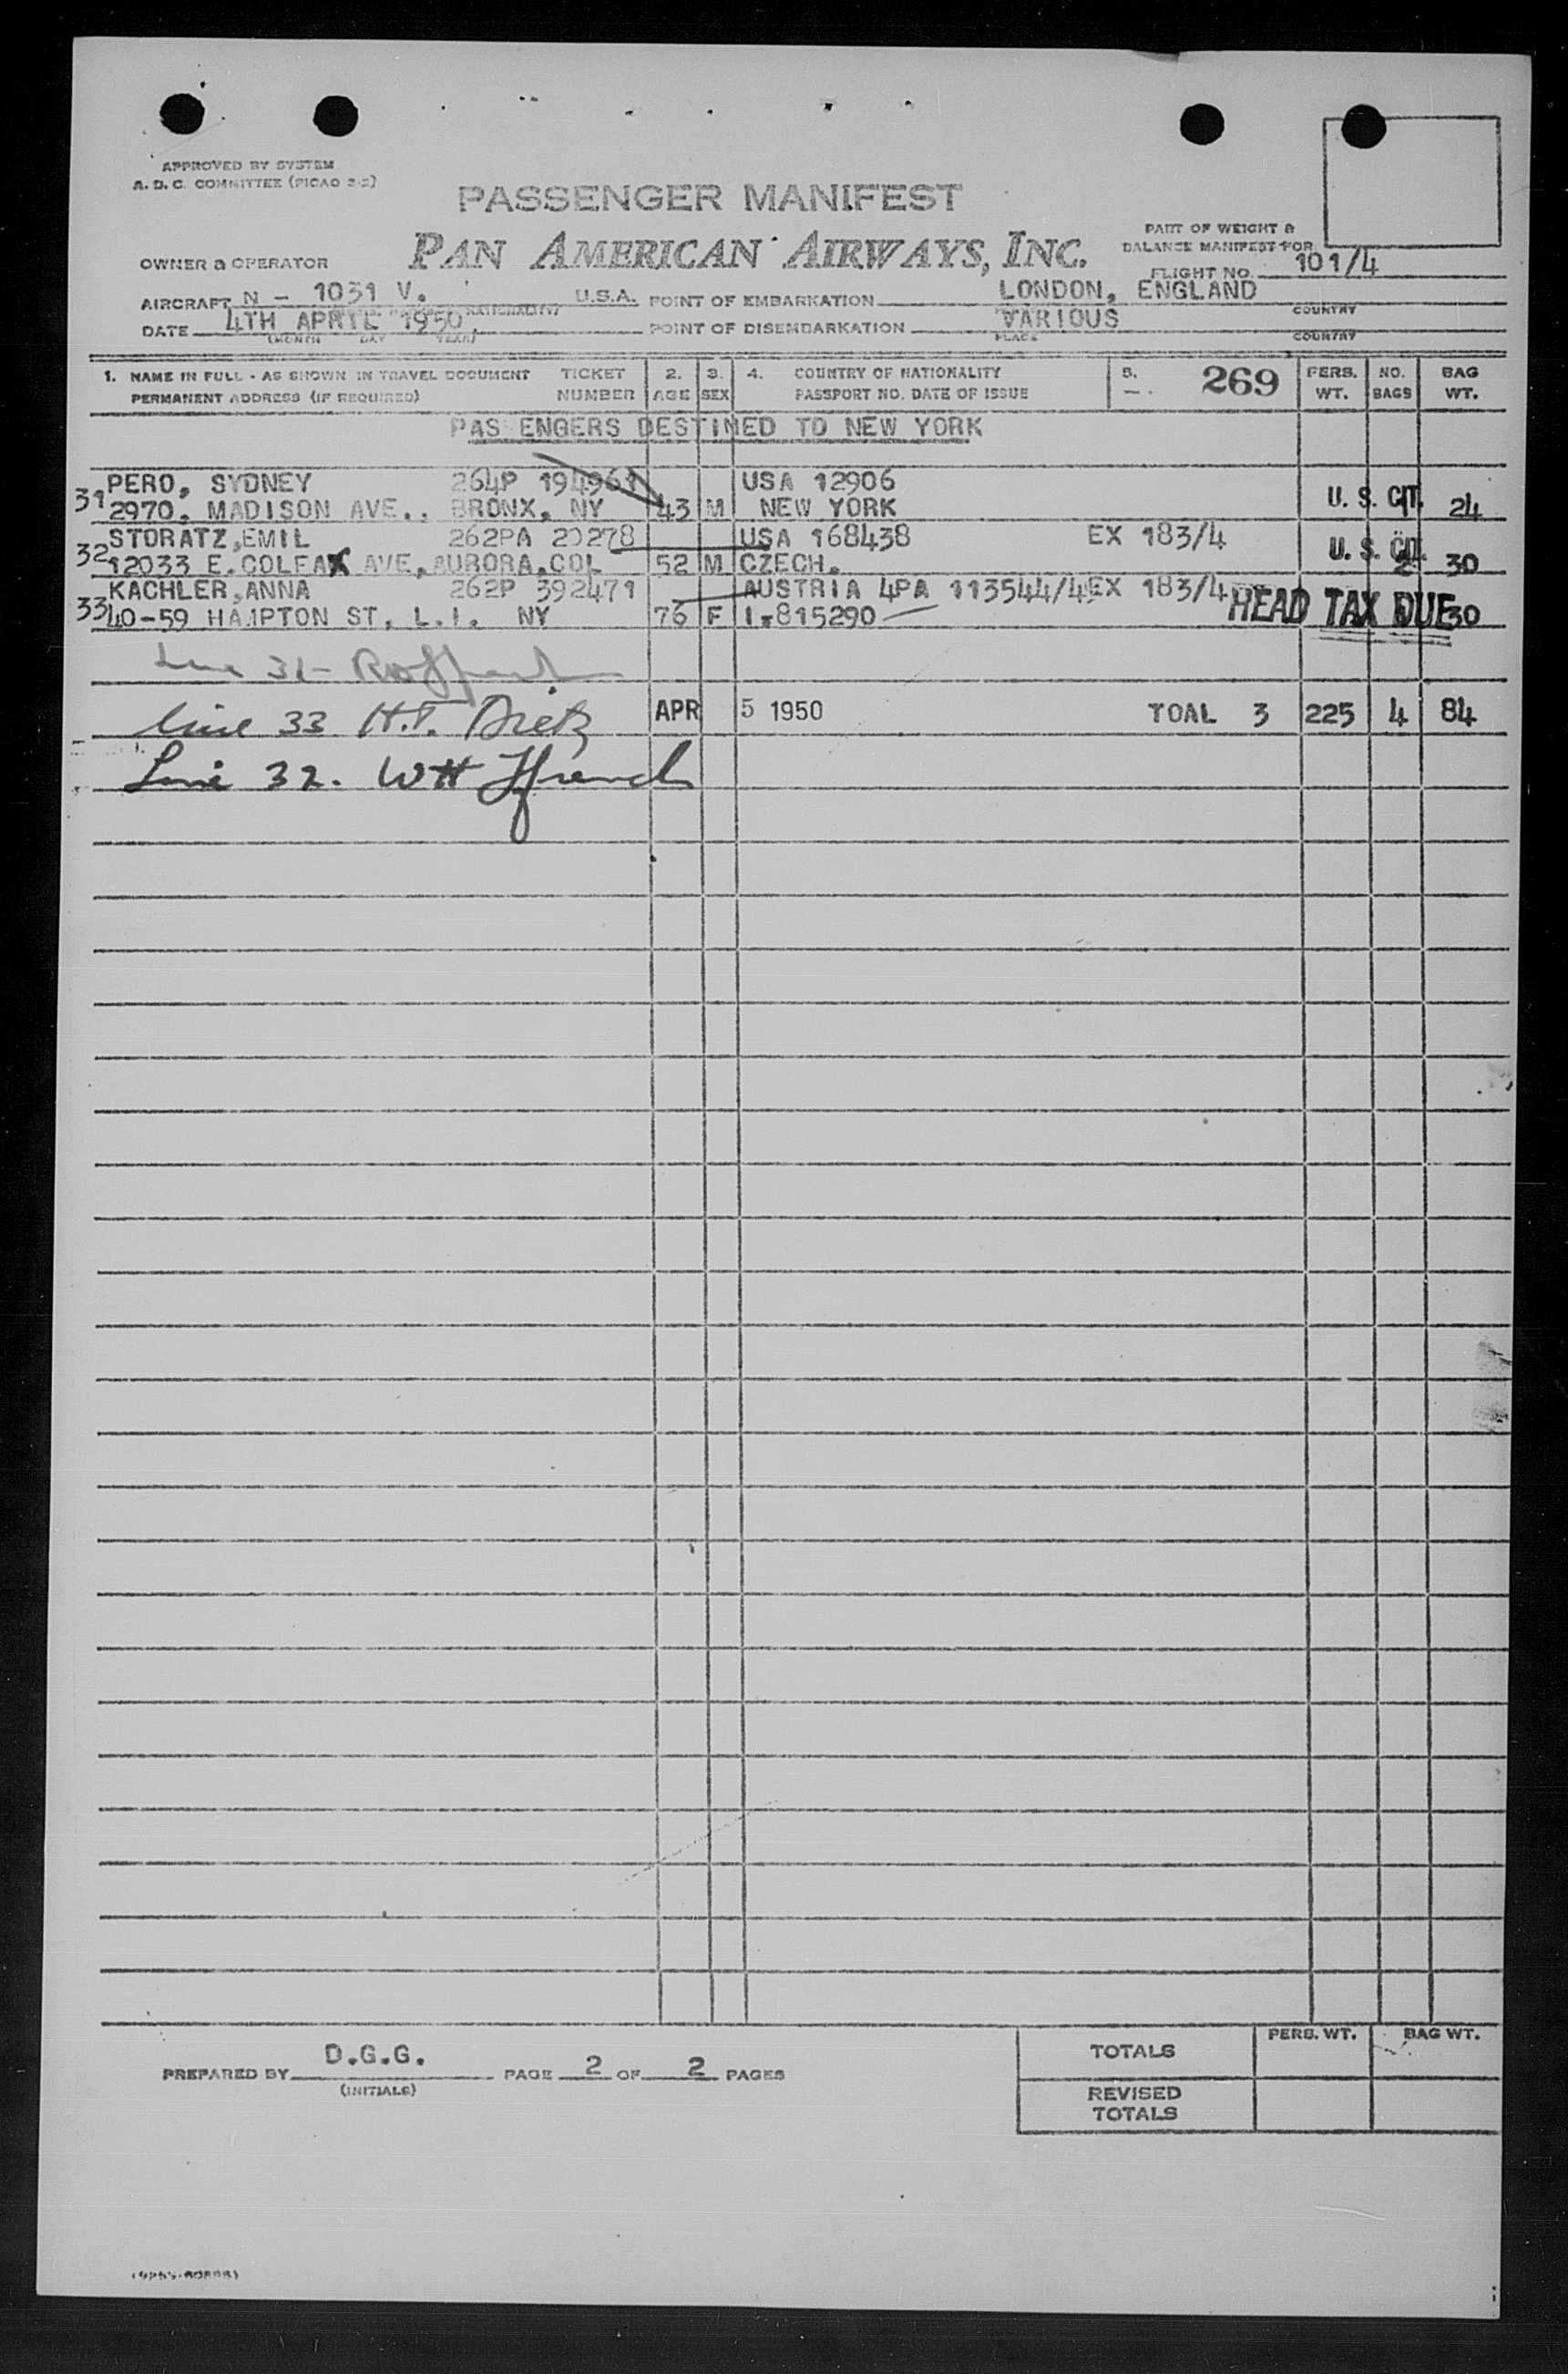 APPROVED BY SYSTEM
A. D. C. COMMITTEE (PICAO 2-2)
PASSENGER MANIFEST
PAN AMERICAN AIRWAYS, INC.
PART OF WEIGHT &
BALANCE MANIFEST FOR
OWNER & OPERATOR
FLIGHT NO. 101/4
AIRCRAFT N - 1031 V. U.S.A. POINT OF EMBARKATION LONDON, ENGLAND
NATIONALITY) COUNTRY
DATE 4TH APRIL 1950. POINT OF DISEMBARKATION VARIOUS
(MONTH DAY YEAR) PLACE COUNTRY
1. NAME IN FULL - AS SHOWN IN TRAVEL DOCUMENT TICKET 2. 3. 4. COUNTRY OF NATIONALITY 269 PERS. NO. BAG
PERMANENT ADDRESS (IF REQUIRED) NUMBER AGE SEX PASSPORT NO. DATE OF ISSUE WT. BAGS WT.
PAS ENGERS DESTINED TO NEW YORK
PERO, SYDNEY 264P 194961 USA 12906
31 2970. MADISON AVE., BRONX, NY 43 M NEW YORK U. S. CIT. 24
STORATZ,EMIL 262PA 20278 USA 168438 EX 183/4
32 12033 E.COLFAX AVE,AURORA,COL 52 M CZECH. U. S. CIT. 30
KACHLER,ANNA 262P 392471 AUSTRIA 4PA 113544/49 EX 183/4
33 40-59 HAMPTON ST, L.I. NY 76 F I-815290 HEAD TAX DUE 30
Line 31-
Line 33 H.T. Dietz APR 5 1950 TOAL 3 225 4 84
Line 32. WH Ffrench
PERS. WT. BAG WT.
TOTALS
PREPARED BY D.G.G. PAGE 2 OF 2 PAGES
(INITIALS)
REVISED
TOTALS